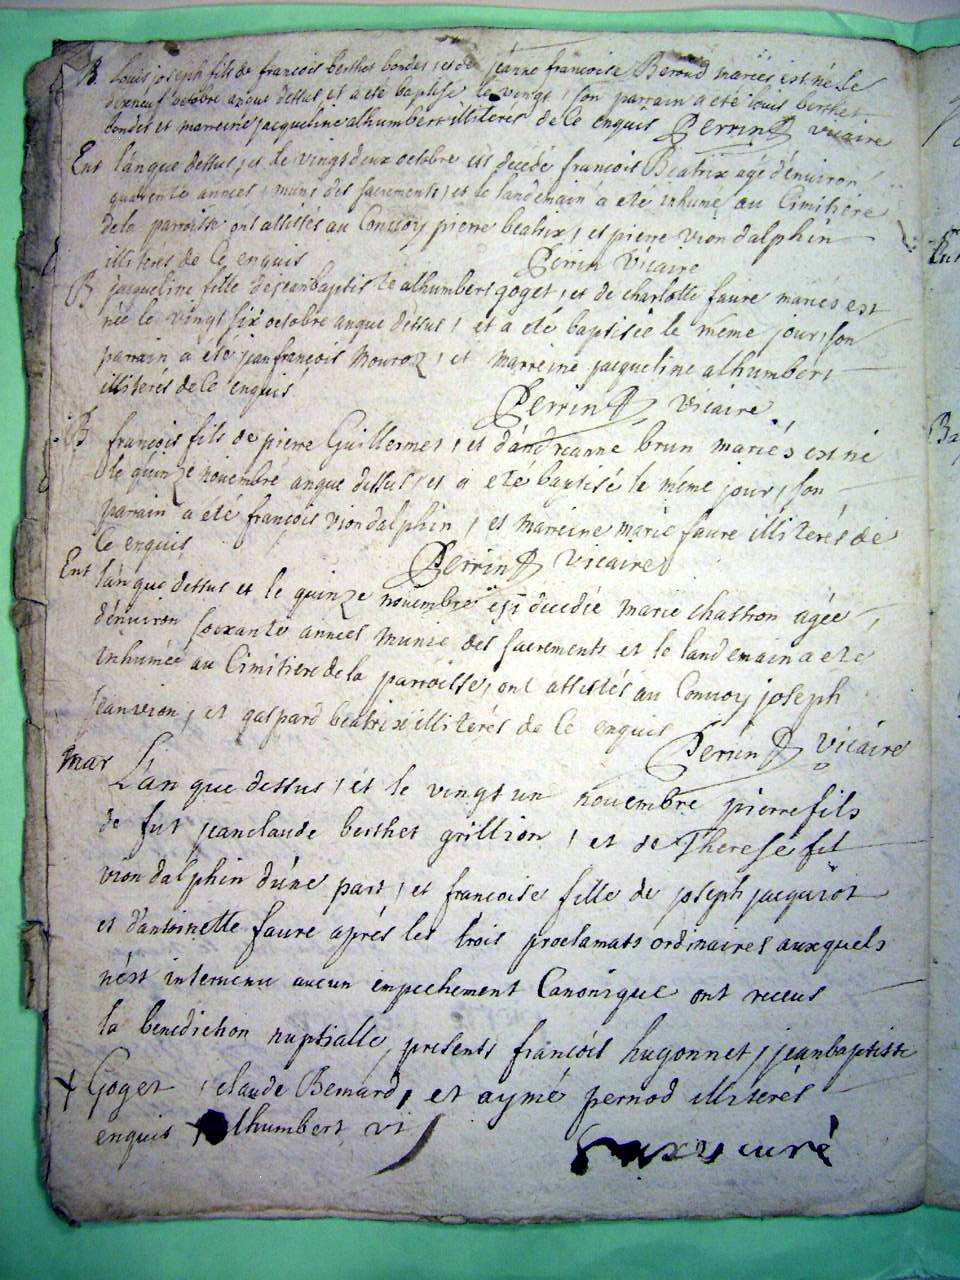 B Louis joseph fils de francois berthet bondet, et de jeanne francoise Beroud mariés est né le
dixneuf octobre anque dessus et a eté baptisé le vingt, son parrain a eté louis berthet
bondet et marreine jacqueline alhumbert illiteres de ce enquis Perrin vicaire
Ent l'anque dessus, et le vingt deux octobre est décédé francois Beatrix agé d'environ
quarente annees, muni des sacrements, et le landemain a eté inhumé au Cimitiere
de la parroisse ont assistés au Convoy pierre beatrix, et pierre vion dalphin
illiterés de ce enquis Perrin Vicaire
B jacqueline fille de jeanbaptiste alhumbert goget, et de charlotte faure maries est
née le vingt six octobre anque dessus, et a eté baptisée le même jour, son
parrain a eté jeanfrançois Mouroz, et marreine jacqueline alhumbert
illiterés de ce enquis Perrin Vicaire
B francois fils de pierre Guillermet, et d'andreanne brun mariés est né
le quinze novembre anque dessus, et a eté baptisé le méme jour, son
parrain a eté françois vion dalphin, et marreine marie faure illiterés de
ce enquis Perrin Vicaire
Ent l'anque dessus et le quinze novembre est decedée marie chastron agée
d'environ soixante annees munie des sacrements et le landemain a eté
inhumée au Cimitiere de la parroisse, ont assistés au Convoy joseph
jeanvion, et gaspard beatrix illiterés de ce enquis Perrin Vicaire
mar L'an que dessus, et le vingt un novembre pierre fils
de fut jeanclaude berthet grillion, et de Therese fel
vion dalphin d'une part, et francoise fille de joseph jacquiot
et d'antoinette faure aprés les trois proclamats ordinaires auxquels
n'est intervenu aucun empechement Canonique ont receus
la benediction nuptialle, presents francois hugonnet, jeanbaptiste
+ Goget, claude Bernard, et aymé pernod illiterés
enquis + alhumbert vi
curé